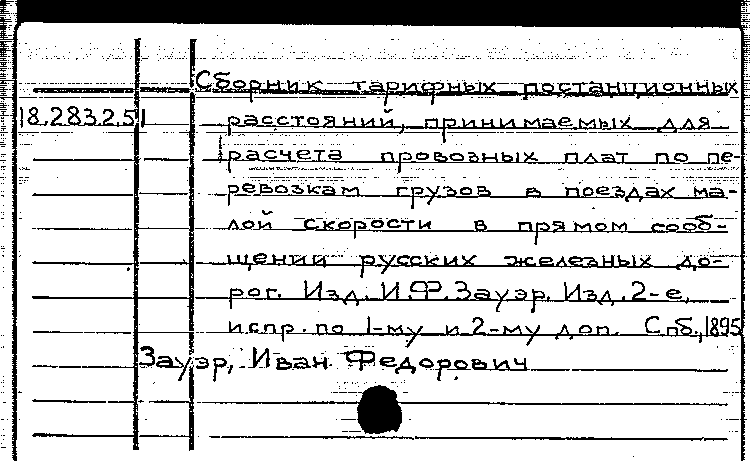 Сборник тарифных постанционных
18.283.2.51 расстояний, принимаемых для
расчета провозных плат по пе-
ревозкам грузов в поездах ма-
лой скорости в прямом сооб-
щении русских железных до-
рог. Изд. И.Ф. Зауэр. Изд. 2-е,
испр. по 1-му и 2-му доп. Спб., 1895
Зауэр, Иван Федорович